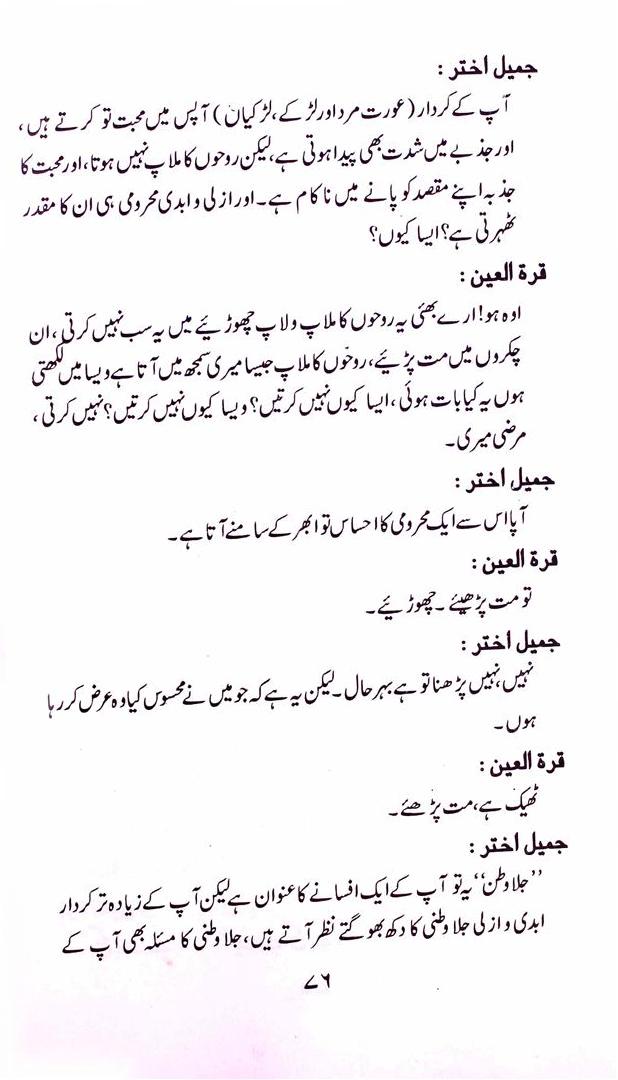 جمیل اختر :
آپ کے کردار (عورت مرد اور لڑکے، لڑکیاں) آپس میں محبت تو کرتے ہیں،
اور جذبے میں شدت بھی پیدا ہوتی ہے، لیکن روحوں کا ملاپ نہیں ہوتا، اور محبت کا
جذبہ اپنے مقصد کو پانے میں ناکام ہے۔ اور ازلی و ابدی محرومی ہی ان کا مقدر
ٹھہرتی ہے؟ ایسا کیوں؟
قرۃ العین :
اوہ ہو! ارے بھئی یہ روحوں کا ملاپ ولاپ چھوڑیئے میں یہ سب نہیں کرتی، ان
چکروں میں مت پڑیئے، روحوں کا ملاپ جیسا میری سمجھ میں آتا ہے ویسا میں لکھتی
ہوں یہ کیا بات ہوئی، ایسا کیوں نہیں کرتیں؟ ویسا کیوں نہیں کرتیں؟ نہیں کرتی،
مرضی میری۔
جمیل اختر :
آپا اس سے ایک محرومی کا احساس تو ابھر کے سامنے آتا ہے۔
قرۃ العین :
تو مت پڑھیئے۔ چھوڑیئے۔
جمیل اختر :
نہیں، نہیں پڑھنا تو ہے بہر حال۔ لیکن یہ ہے کہ جو میں نے محسوس کیا وہ عرض کر رہا
ہوں۔
قرۃ العین :
ٹھیک ہے، مت پڑھئے۔
جمیل اختر :
’’جلا وطن‘‘ یہ تو آپ کے ایک افسانے کا عنوان ہے لیکن آپ کے زیادہ تر کردار
ابدی و ازلی جلا وطنی کا دکھ بھوگتے نظر آتے ہیں، جلا وطنی کا مسئلہ بھی آپ کے
۷۶